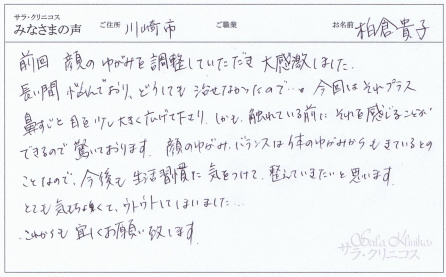 サラ・クリニコス
みなさまの声
ご住所 川崎市 ご職業 お名前 柏倉貴子
前回 顔のゆがみを調整していただき 大感激しました.
長い間 悩んでおり、どうしても 治せなかったので…。今回はそれプラス
鼻すじと目を少し大きく広げて下さり、しかも、触れている前に それを感じることが
できるので 驚いております. 顔のゆがみ、バランスは体のゆがみからもきているとの
ことなので、今後も 生活習慣に 気をつけて、整えていきたいと思います.
とても 気もちが良くて、ウトウトしてしまいました…
これからも 宜しくお願い致します.
Sala Klinikos
サラ・クリニコス